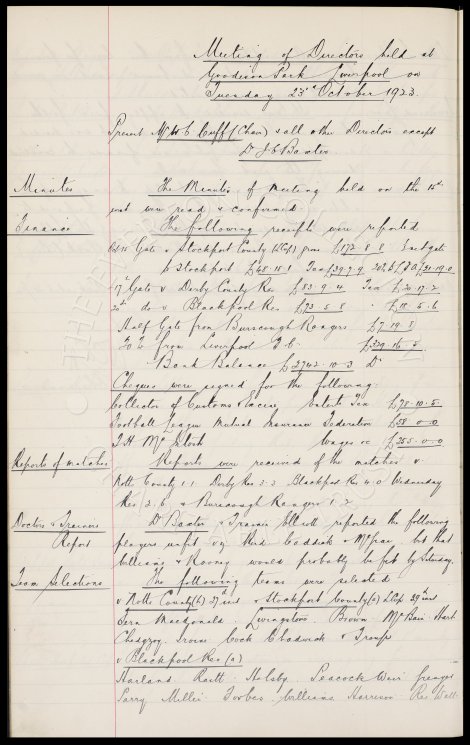 Meeting of Directors held at
Goodison Park Liverpool on
Tuesday 23rd October 1923.
Present Mr W. C. Cuff (Chair) & all other Directors except
Dr J. C. Baxter.
Minutes
The Minutes of Meeting held on the 15th
inst were read & confirmed
Finance
The following receipts were reported
Oct 15 Gate v Stockport County (LCp) gross £172. 8. 8 Each gate
to Stockport £48. 18. 1 Tax £39. 7. 9
17 Gate v Derby County Res £83. 9. 4 Tax £20. 17. 2
20th do v Blackpool Res £73. 5. 8 £18. 5. 6
Half Gate from Burscough Rangers £7. 19. 8
from Liverpool F.C. £329. 16. 5
Bank Balance £3742. 10. 3 Dr
Cheques were signed for the following:
Collector of Customs & Excise Enterts Tax £78. 10. 5
Football League Mutual Insurance Federation £58. 0. 0
T.H. McIntosh Wages &c £355. 0. 0
Reports of matches
Reports were received of the matches v
Notts County 1.1 Derby Res 3.3 Blackpool Res 4.0 Wednesday
Res 2.6 & Burscough Rangers 1.2
Doctors & Trainers
Report
Dr Baxter & Trainer Elliott reported the following
players unfit viz Reid Caddick & but that
Williams & Rooney would probably be fit by Saturday.
Team Selections
The following teams were selected
v Notts County (h) 27 inst & Stockport County (a) LCp 29th inst
Fern Macdonald Livingstone Brown McBain Hart
Chedgzoy Irvine Cock Chadwick & Troup
v Blackpool Res (a)
Harland Raitt Holsby Peacock Weir
Parry Miller Forbes Williams Harrison Res